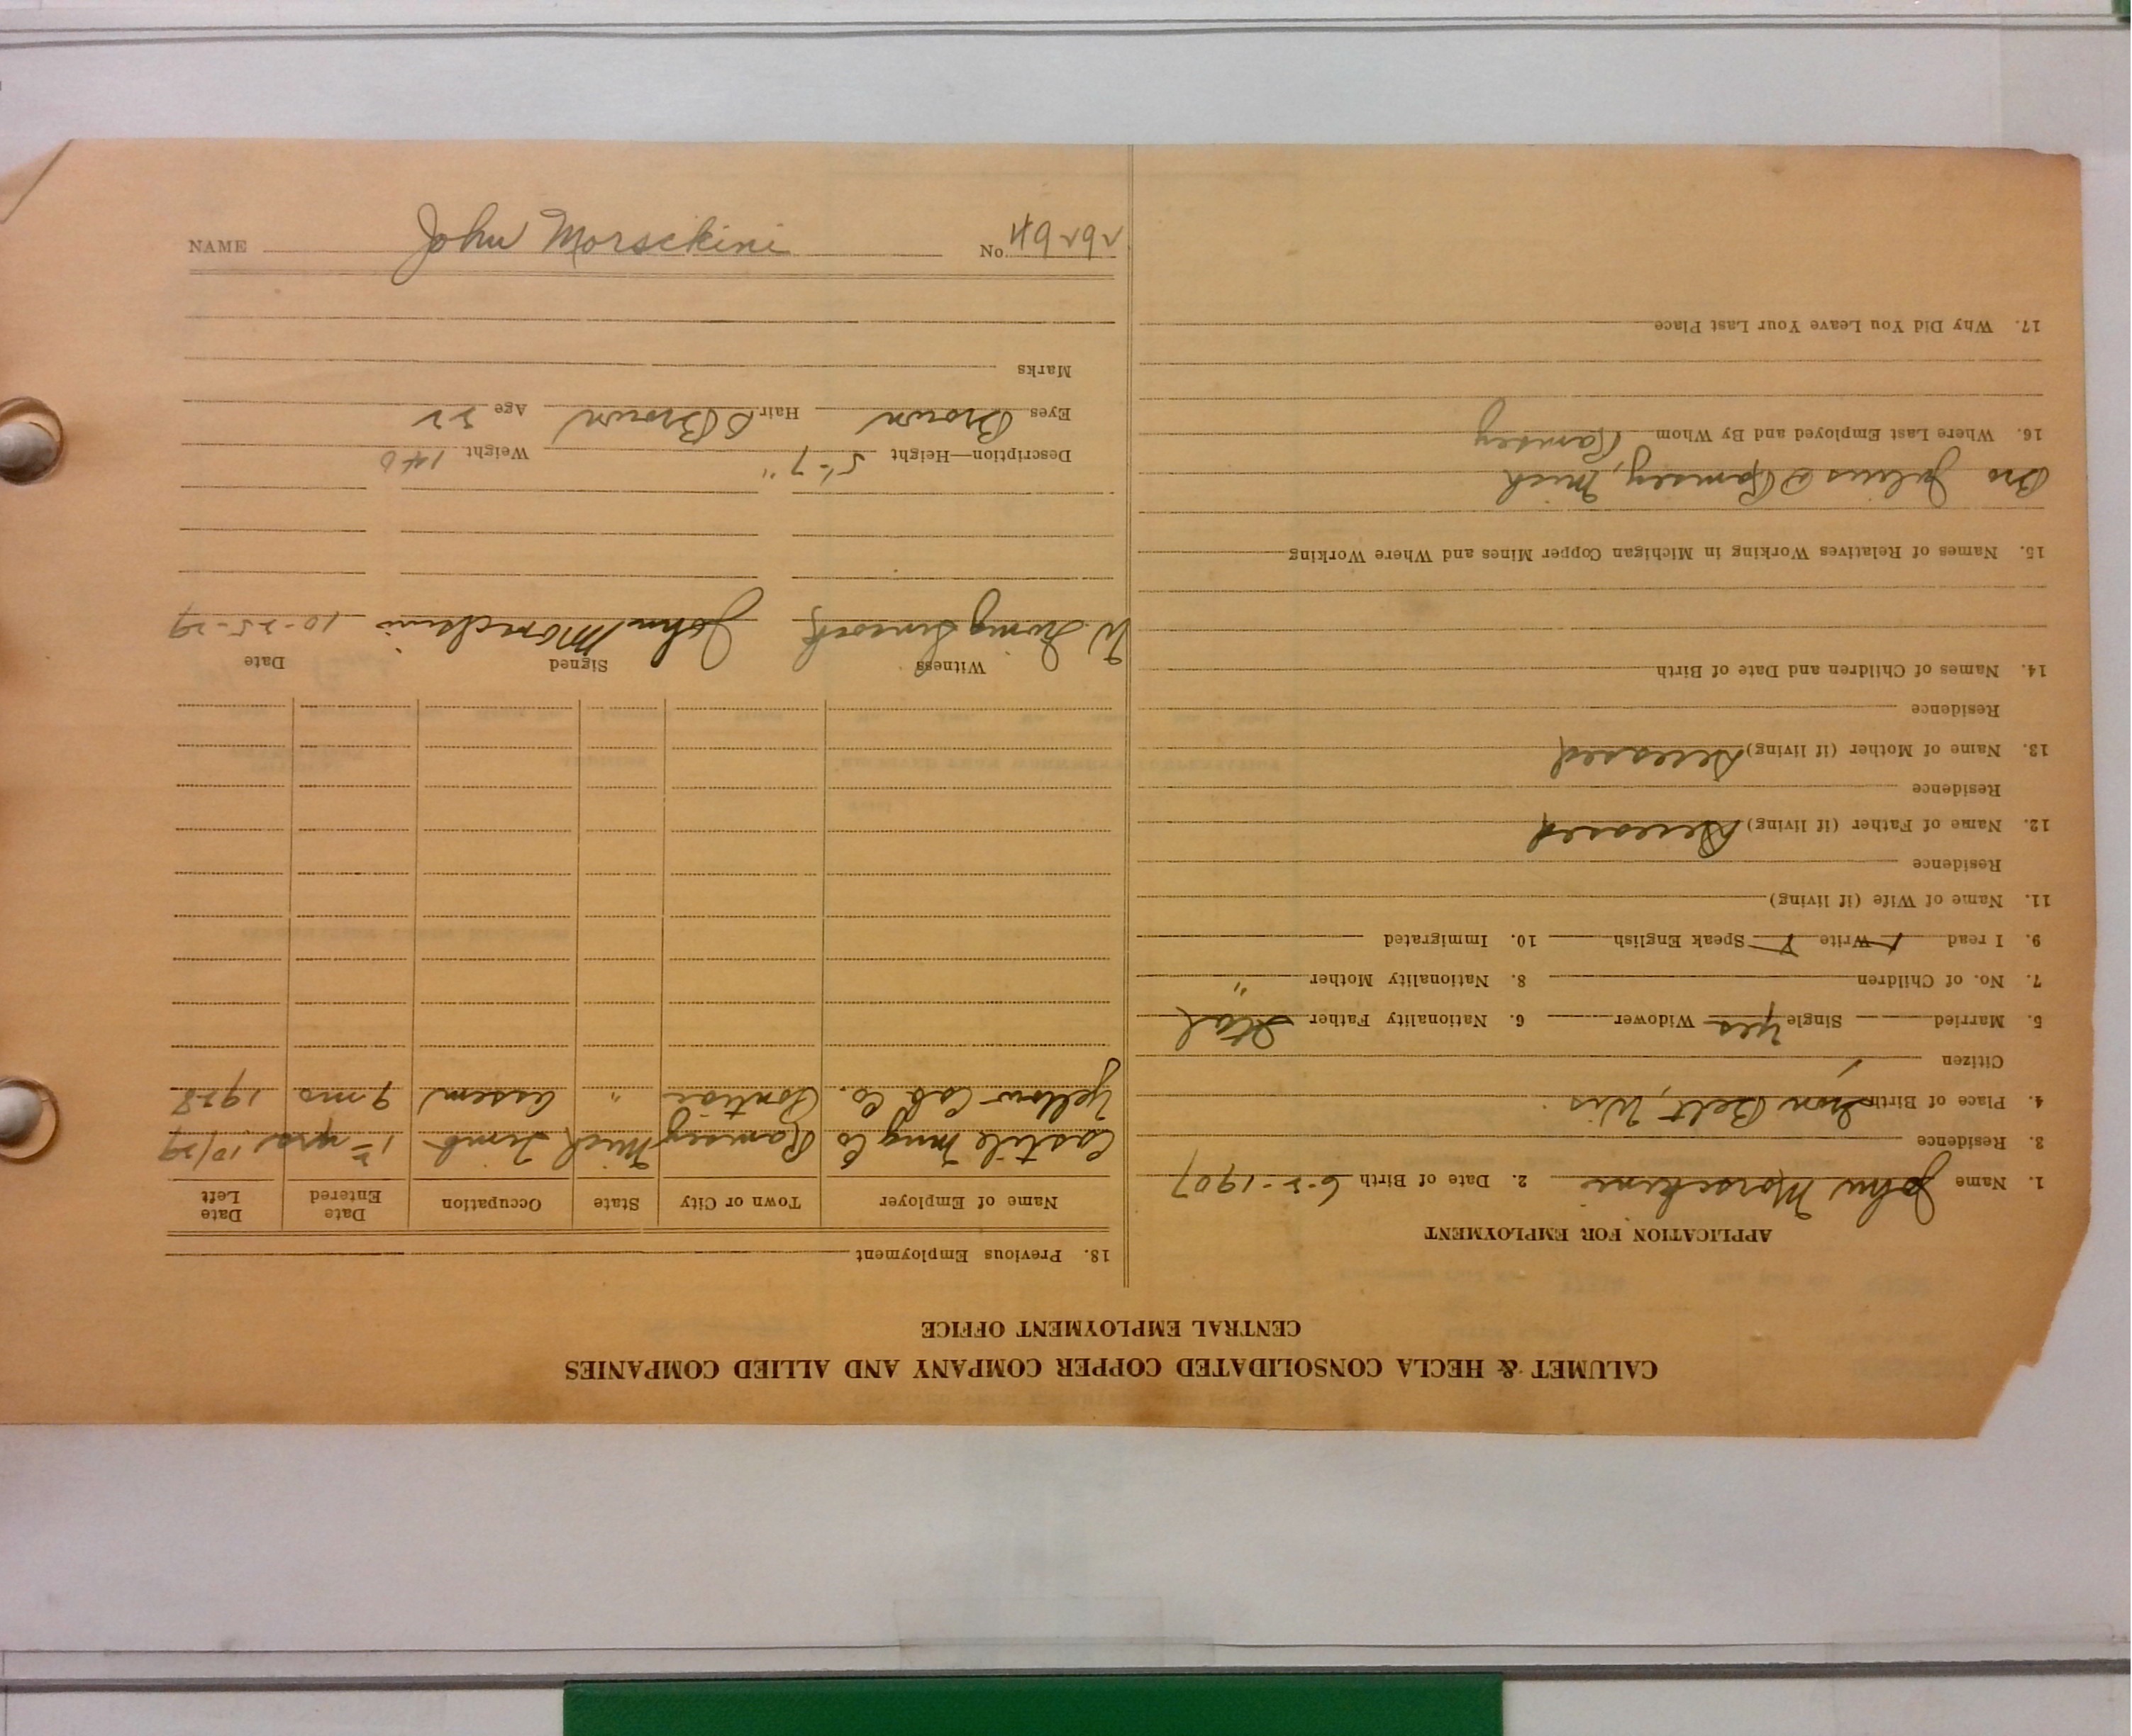 NAME John Morsckini No. 49292
CALUMET & HECLA CONSOLIDATED COPPER COMPANY AND ALLIED COMPANIES
CENTRAL EMPLOYMENT OFFICE
APPLICATION FOR EMPLOYMENT
1. Name John Morsckini 2. Date of Birth 6-2-1907
3. Residence
4. Place of Birth Iron Belt, Wis
Citizen
5. Married Single yes Widower 6. Nationality Father Ital
7. No. of Children 8. Nationality Mother "
9. I read Write Speak English 10. Immigrated
11. Name of Wife (if living)
Residence
12. Name of Father (if living) Deceased
Residence
13. Name of Mother (if living) Deceased
Residence
14. Names of Children and Date of Birth
15. Names of Relatives Working in Michigan Copper Mines and Where Working
Bro Julius Ramsey, Mich
16. Where Last Employed and By Whom Ramsey
17. Why Did You Leave Your Last Place
18. Previous Employment
Name of Employer Town or City State Occupation Date Entered Date Left
Castile Mng Co Ramsey Mich Timb 10/29
Yellow Cab Co. Pontiac " assem 9 mo 1928
Witness Signed Date
W. Irving John Morsckini 10-25-29
Description—Height 5'-7" Weight 140
Eyes Brown Hair D Brown Age 22
Marks